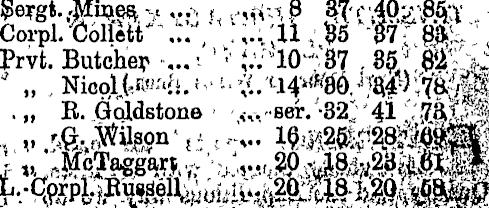 Sergt. Mines ... ... 8 37 40 85
Corpl. Collett ... ... 11 35 37 83
Pryt. Butcher ... ... 10 37 35 82
„ Nicol ... ... 14 30 34 78
„ R. Goldstone ... ser. 32 41 73
„ G. Wilson ... 16 25 28 69
„ McTaggart ... 20 18 23 61
L.-Corpl. Russell ... 20 18 20 58